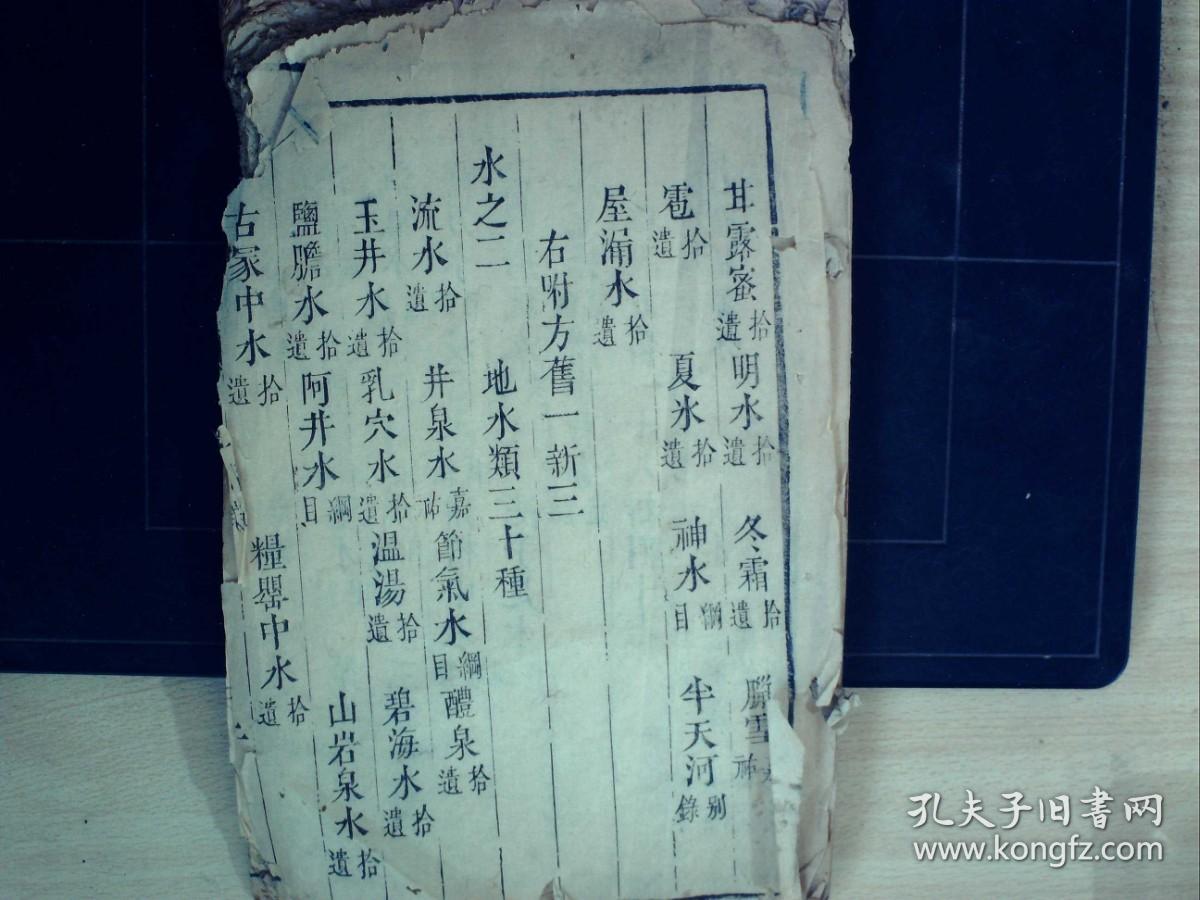 甘露蜜拾遺 明水拾遺 冬霜拾遺 臘雪
雹拾遺 夏氷拾遺 神水綱目 半天河別錄
屋漏水拾遺
右咐方舊一新三
水之二 地水類三十種
流水拾遺 井泉水嘉祐 節氣水綱目 醴泉拾遺
玉井水拾遺 乳穴水拾遺 温湯拾遺 碧海水拾遺
鹽膽水拾遺 阿井水綱目 山岩泉水拾遺
古冢中水拾遺 糧罌中水拾遺
孔夫子旧書网
www.kongfz.com